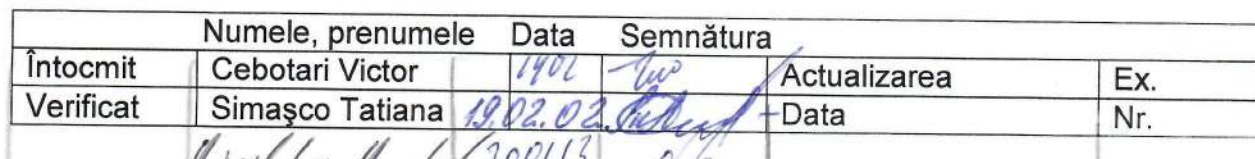 Numele, prenumele Data Semnătura
Întocmit Cebotari Victor 1902 Actualizarea Ex.
Verificat Simaşco Tatiana 19.02.02. Data Nr.